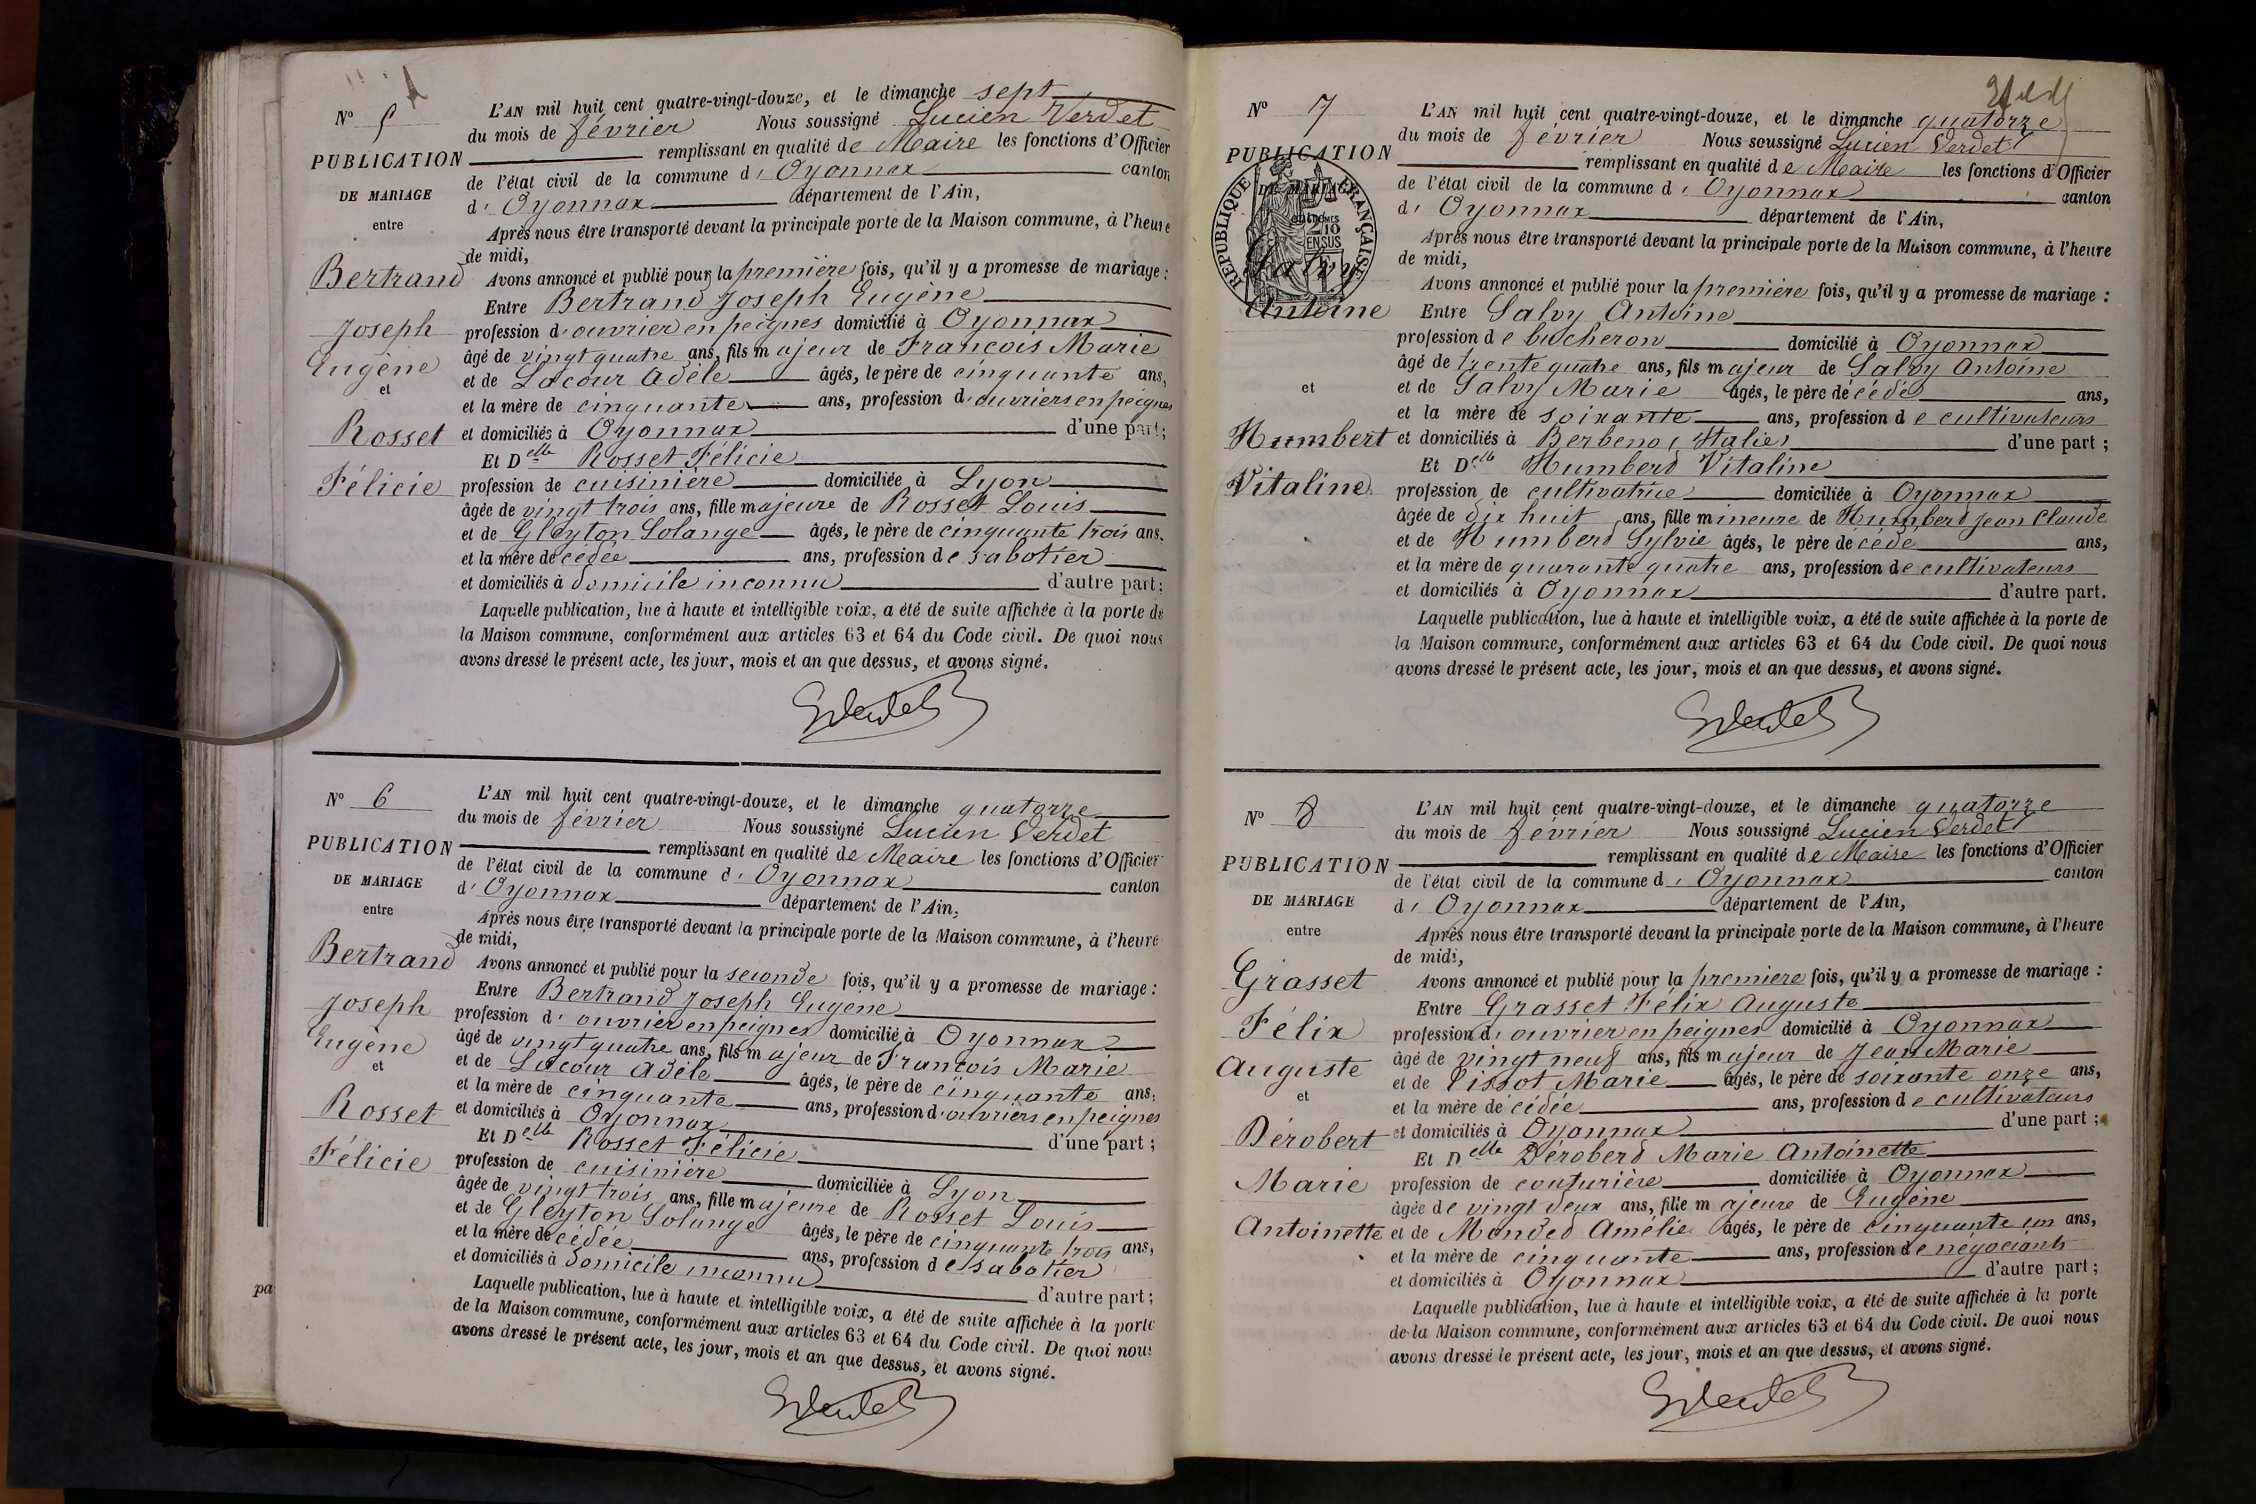 Nº 5
PUBLICATION
DE MARIAGE
entre
Bertrand
Joseph
Eugène
et
Rosset
Félicie
L'AN mil huit cent quatre-vingt-douze, et le dimanche sept
du mois de février Nous soussigné Lucien Verdet
remplissant en qualité de Maire les fonctions d'Officier
de l'état civil de la commune d' Oyonnax canton
d' Oyonnax département de l'Ain,
Après nous être transporté devant la principale porte de la Maison commune, à l'heure
de midi,
Avons annoncé et publié pour la première fois, qu'il y a promesse de mariage :
Entre Bertrand Joseph Eugène
profession d'ouvrier en peignes domicilié à Oyonnax
âgé de vingt quatre ans, fils majeur de François Marie
et de Lacour Adèle âgés, le père de cinquante ans,
et la mère de cinquante ans, profession d'ouvriers en peignes
et domiciliés à Oyonnax d'une part;
Et Delle Rosset Félicie
profession de cuisinière domiciliée à Lyon
âgée de vingt trois ans, fille majeure de Rosset Louis
et de Gleyton Solange âgés, le père de cinquante trois ans.
et la mère décédée ans, profession de sabotier
et domiciliés à domicile inconnu d'autre part;
Laquelle publication, lue à haute et intelligible voix, a été de suite affichée à la porte de
la Maison commune, conformément aux articles 63 et 64 du Code civil. De quoi nous
avons dressé le présent acte, les jour, mois et an que dessus, et avons signé.
Nº 6
PUBLICATION
DE MARIAGE
entre
Bertrand
Joseph
Eugène
et
Rosset
Félicie
L'AN mil huit cent quatre-vingt-douze, et le dimanche quatorze
du mois de février Nous soussigné Lucien Verdet
remplissant en qualité de Maire les fonctions d'Officier
de l'état civil de la commune d' Oyonnax canton
d' Oyonnax département de l'Ain,
Après nous être transporté devant la principale porte de la Maison commune, à l'heure
de midi,
Avons annoncé et publié pour la seconde fois, qu'il y a promesse de mariage :
Entre Bertrand Joseph Eugène
profession d' ouvrier en peignes domicilié à Oyonnax
âgé de vingt quatre ans, fils majeur de François Marie
et de Lacour Adèle âgés, le père de cinquante ans,
et la mère de cinquante ans, profession d'ouvriers en peignes
et domiciliés à Oyonnax d'une part ;
Et Delle Rosset Félicie
profession de cuisinière domiciliée à Lyon
âgée de vingt trois ans, fille majeure de Rosset Louis
et de Gleyton Solange âgés, le père de cinquante trois ans,
et la mère décédée ans, profession de sabotier
et domiciliés à domicile inconnu d'autre part ;
Laquelle publication, lue à haute et intelligible voix, a été de suite affichée à la porte
de la Maison commune, conformément aux articles 63 et 64 du Code civil. De quoi nous
avons dressé le présent acte, les jour, mois et an que dessus, et avons signé.
pa
Nº 7
PUBLICATION
DE MARIAGE
RÉPUBLIQUE FRANÇAISE
2/10
EN SUS
Salvy
Antoine
et
Humbert
Vitaline
L'AN mil huit cent quatre-vingt-douze, et le dimanche quatorze
du mois de février Nous soussigné Lucien Verdet
remplissant en qualité de Maire les fonctions d'Officier
de l'état civil de la commune d' Oyonnax canton
d' Oyonnax département de l'Ain,
Après nous être transporté devant la principale porte de la Maison commune, à l'heure
de midi,
Avons annoncé et publié pour la première fois, qu'il y a promesse de mariage :
Entre Salvy Antoine
profession de bucheron domicilié à Oyonnax
âgé de trente quatre ans, fils majeur de Salvy Antoine
et de Salvy Marie âgés, le père décédé ans,
et la mère de soixante ans, profession de cultivateurs
et domiciliés à Berbeno (Italie) d'une part ;
Et Delle Humbert Vitaline
profession de cultivatrice domiciliée à Oyonnax
âgée de dix huit ans, fille mineure de Humbert Jean Claude
et de Humbert Sylvie âgés, le père décédé ans,
et la mère de quarante quatre ans, profession de cultivateurs
et domiciliés à Oyonnax d'autre part.
Laquelle publication, lue à haute et intelligible voix, a été de suite affichée à la porte de
la Maison commune, conformément aux articles 63 et 64 du Code civil. De quoi nous
avons dressé le présent acte, les jour, mois et an que dessus, et avons signé.
Nº 8
PUBLICATION
DE MARIAGE
entre
Grasset
Félix
Auguste
et
Dérobert
Marie
Antoinette
L'AN mil huit cent quatre-vingt-douze, et le dimanche quatorze
du mois de février Nous soussigné Lucien Verdet
remplissant en qualité de Maire les fonctions d'Officier
de l'état civil de la commune d' Oyonnax canton
d' Oyonnax département de l'Ain,
Après nous être transporté devant la principale porte de la Maison commune, à l'heure
de midi,
Avons annoncé et publié pour la première fois, qu'il y a promesse de mariage :
Entre Grasset Félix Auguste
profession d' ouvrier en peignes domicilié à Oyonnax
âgé de vingt neuf ans, fils majeur de Jean Marie
et de Pissot Marie âgés, le père de soixante onze ans,
et la mère décédée ans, profession de cultivateurs
et domiciliés à Oyonnax d'une part ;
Et Delle Dérobert Marie Antoinette
profession de couturière domiciliée à Oyonnax
âgée de vingt deux ans, fille majeure de Eugène
et de Monded Amélie âgés, le père de cinquante un ans,
et la mère de cinquante ans, profession de négociants
et domiciliés à Oyonnax d'autre part ;
Laquelle publication, lue à haute et intelligible voix, a été de suite affichée à la porte
de la Maison commune, conformément aux articles 63 et 64 du Code civil. De quoi nous
avons dressé le présent acte, les jour, mois et an que dessus, et avons signé.